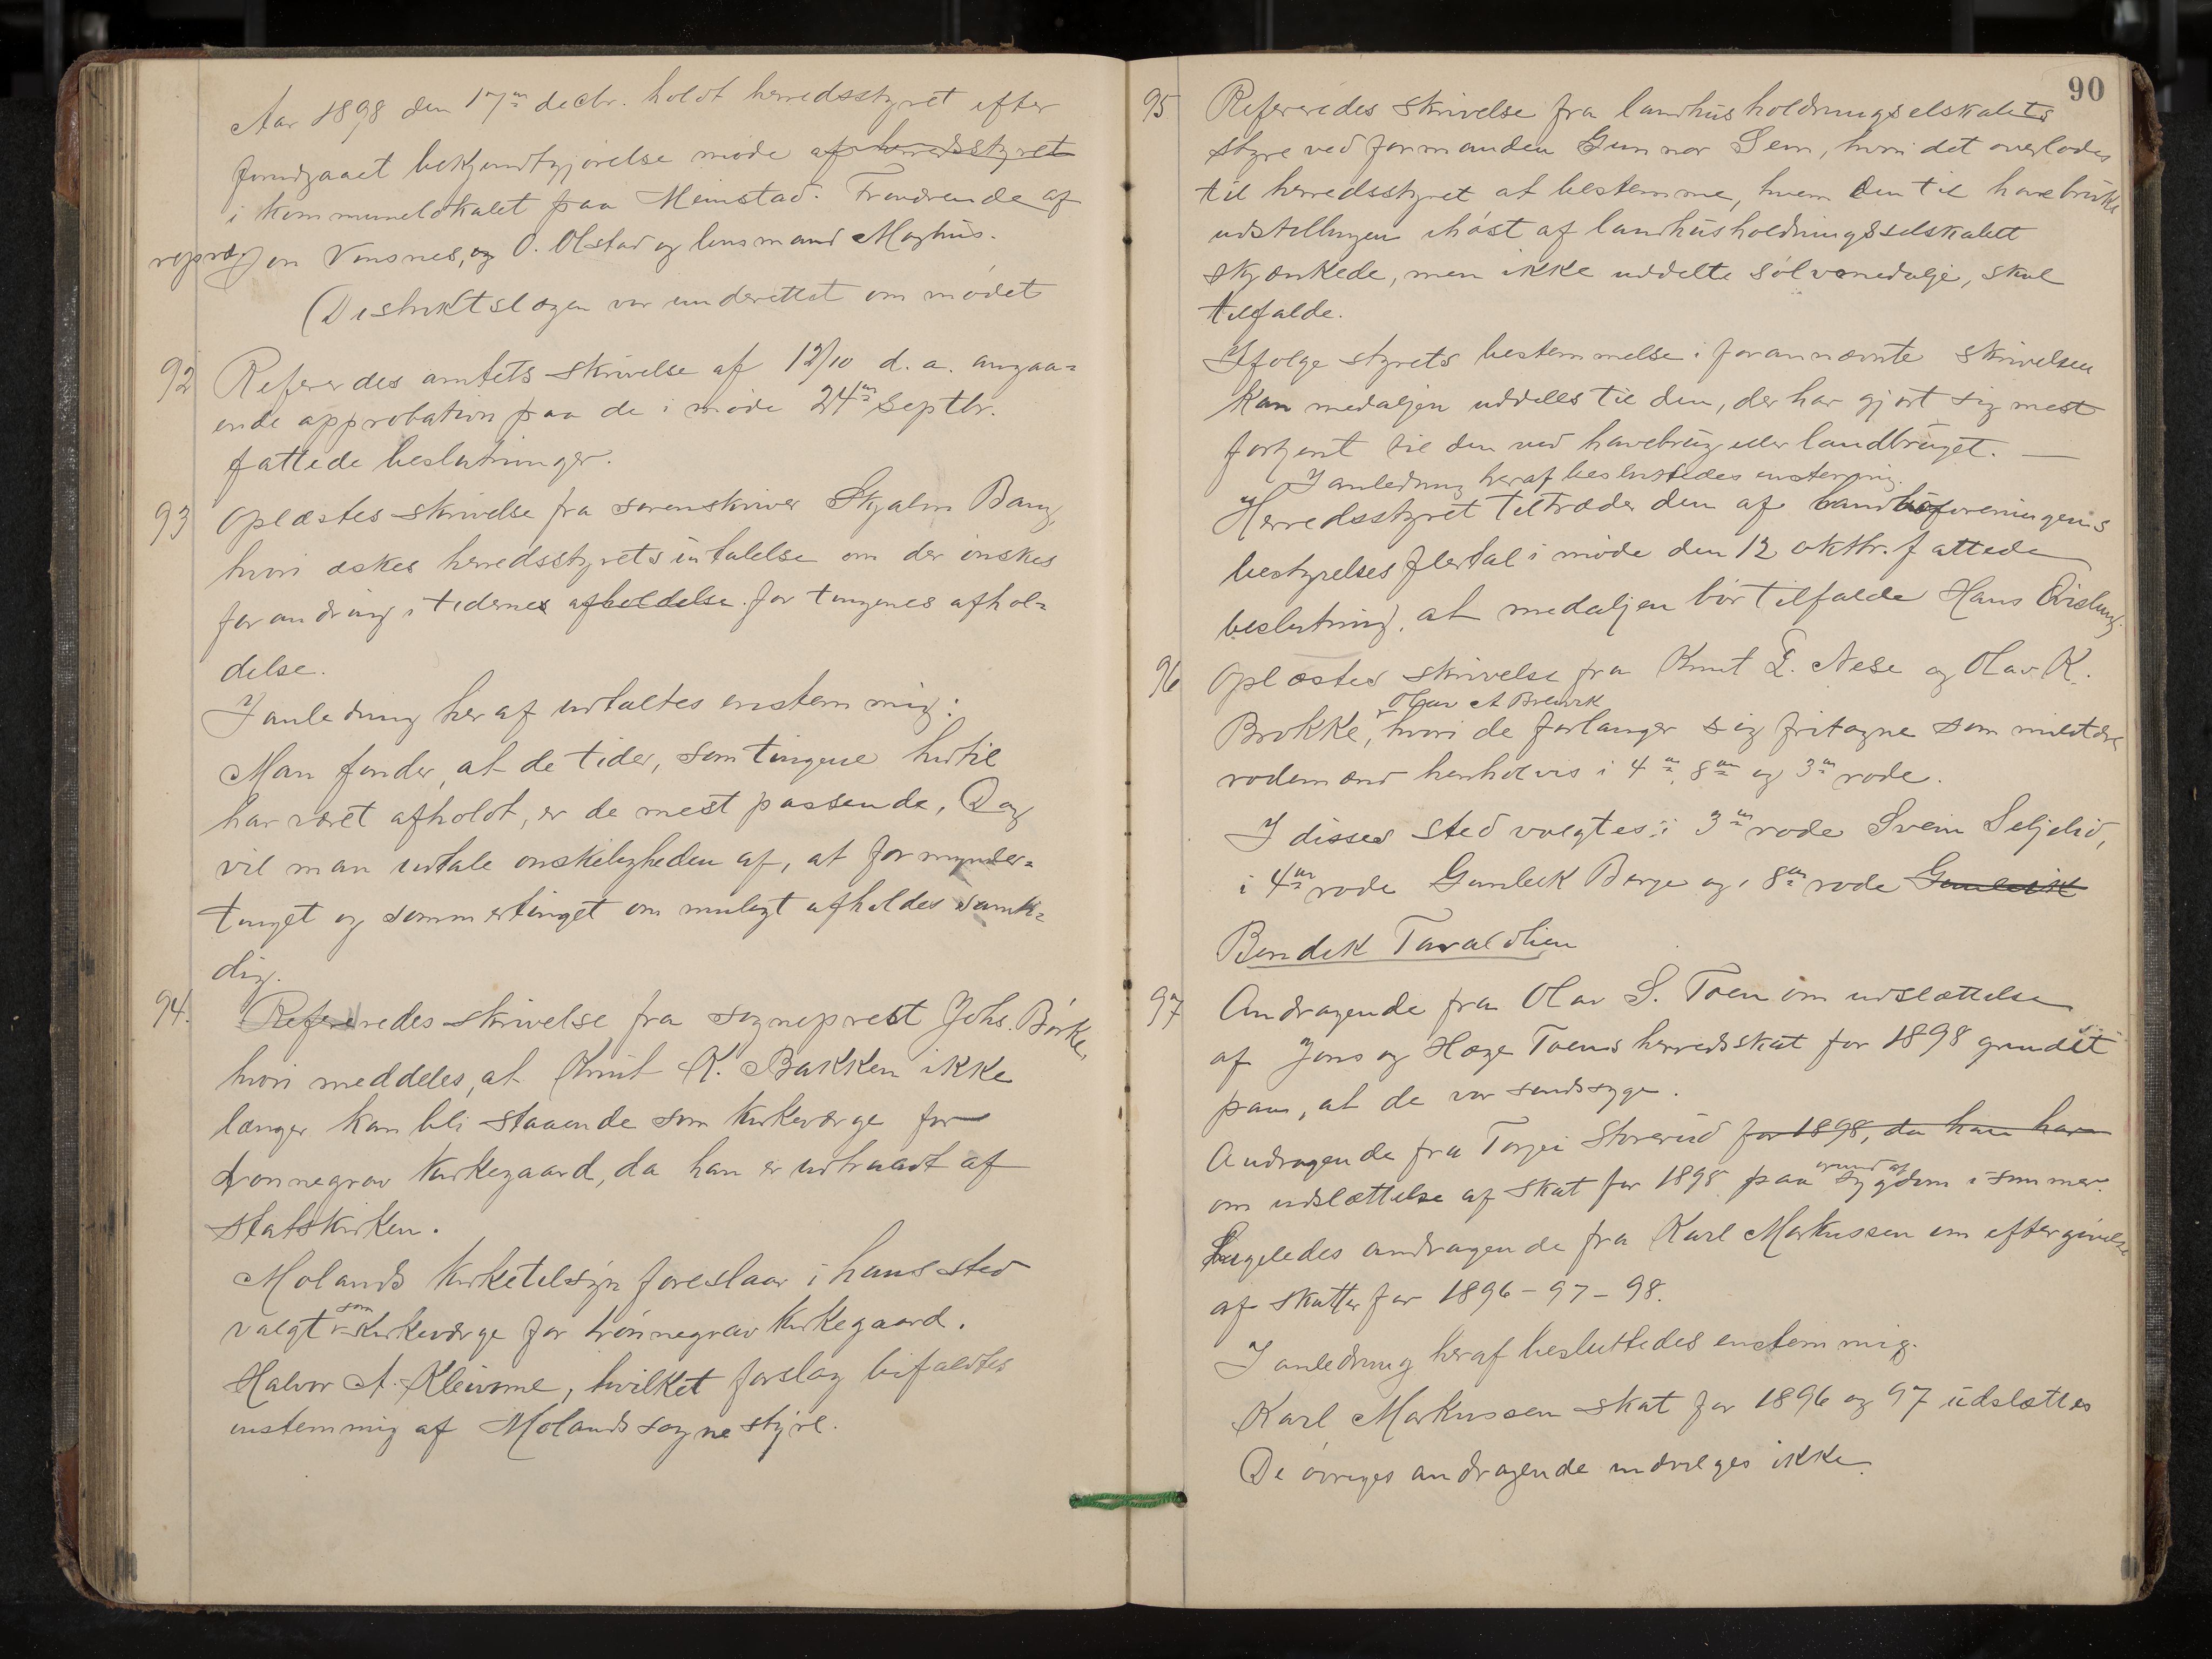 Aar 1898 den 17de decbr. holdt herredsstyret efter
forudgaaet bekjendtgjørelse møde af herredsstyret
i kommunelokalet paa Meinstad. Fraværende af
repræ. Jon Vonsnes, og O. Olstad og lensmand Moghus.
(Distriktslægen var underettet om mødet
92 Refereredes amtets skrivelse af 12/10 d. a. angaa-
ende approbation paa de i møde 24de septbr.
fattede beslutninger.
93 Oplæstes skrivelse fra sorenskriver Skjalm Bang,
hvori æskes herredsstyrets uttalelse om der ønskes
forandring i tidernes afholdelse for tingenes afhol-
delse.
I anledning heraf udtaltes enstemmig:
Man finder, at de tider, som tingene hidtil
har været afholdt, er de mest passende, Dog
vil man udtale ønskeligheden af, at formynder-
tinget og sommertinget om muligt afholdes samti-
dig.
94. Refereredes skrivelse fra sogneprest Johs. Børke,
hvori meddeles, at Knut K. Bakken ikke
længer kan bli staaende som kirkeværge for
Trønnegrav kirkegaard, da han er udtraadt af
statskirken.
Molands kirketilsyn foreslaar i hans sted
som
valgt kirkeværge for trønnegrav kirkegaard.
Halvor A. Kleivone, hvilket forslag bifaldtes
enstemmig af Molands sognestyre.
90
95 Refereredes skrivelse fra landhusholdningselskabets
styre ved formanden Gunnar Sem, hvori det overlodes
til herredsstyret at bestemme, hvem den til havebruks
udstillingen ihøst af landhusholdningsselskabet
skjænkede, men ikke uddelte sølvmedalje, skal
tilfalde.
Ifølge styrets bestemmelse i forannævnte skrivelsen
kan medaljen uddeles til den, der har gjort sig mest
fortjent til den ved havebrug eller landbruget. —
I anledning heraf besluttedes enstemmig.
Herredsstyret tiltræder den af landboforeningens
bestyrelses flertal i møde den 12 oktbr. fattede
beslutning, at medaljen bør tilfalde Hans Qvisling.
96 Oplæstes skrivelse fra Knut T. Nese og Olav K.
Olav A Breivik
Brokke, hvori de forlanger sig fritagne som militære
rodemænd henholdvis i 4de, 8de og 3de rode.
I disses sted valgtes: i 3de rode Svein Seljelid,
i 4de rode Gunleik Berge og i 8de rode Gunleik
Bendik Tavaldlien
97 Andragende fra Olav S. Toen om udslættelse
af Jons og Hæge Toens herredsskat for 1898 grundet
paa, at de var sindssyge.
Andragende fra Torjei Storerud for 1898, da han har
grund af
om udslættelse af skat for 1898 paa sygdom i sommer.
Ligeledes andragende fra Karl Markussen om eftergivelse
af skatter for 1896 - 97 - 98.
I anledning heraf besluttedes enstemmig.
Karl Markussen skat for 1896 og 97 udslættes
De øvriges andragende indvilges ikke.